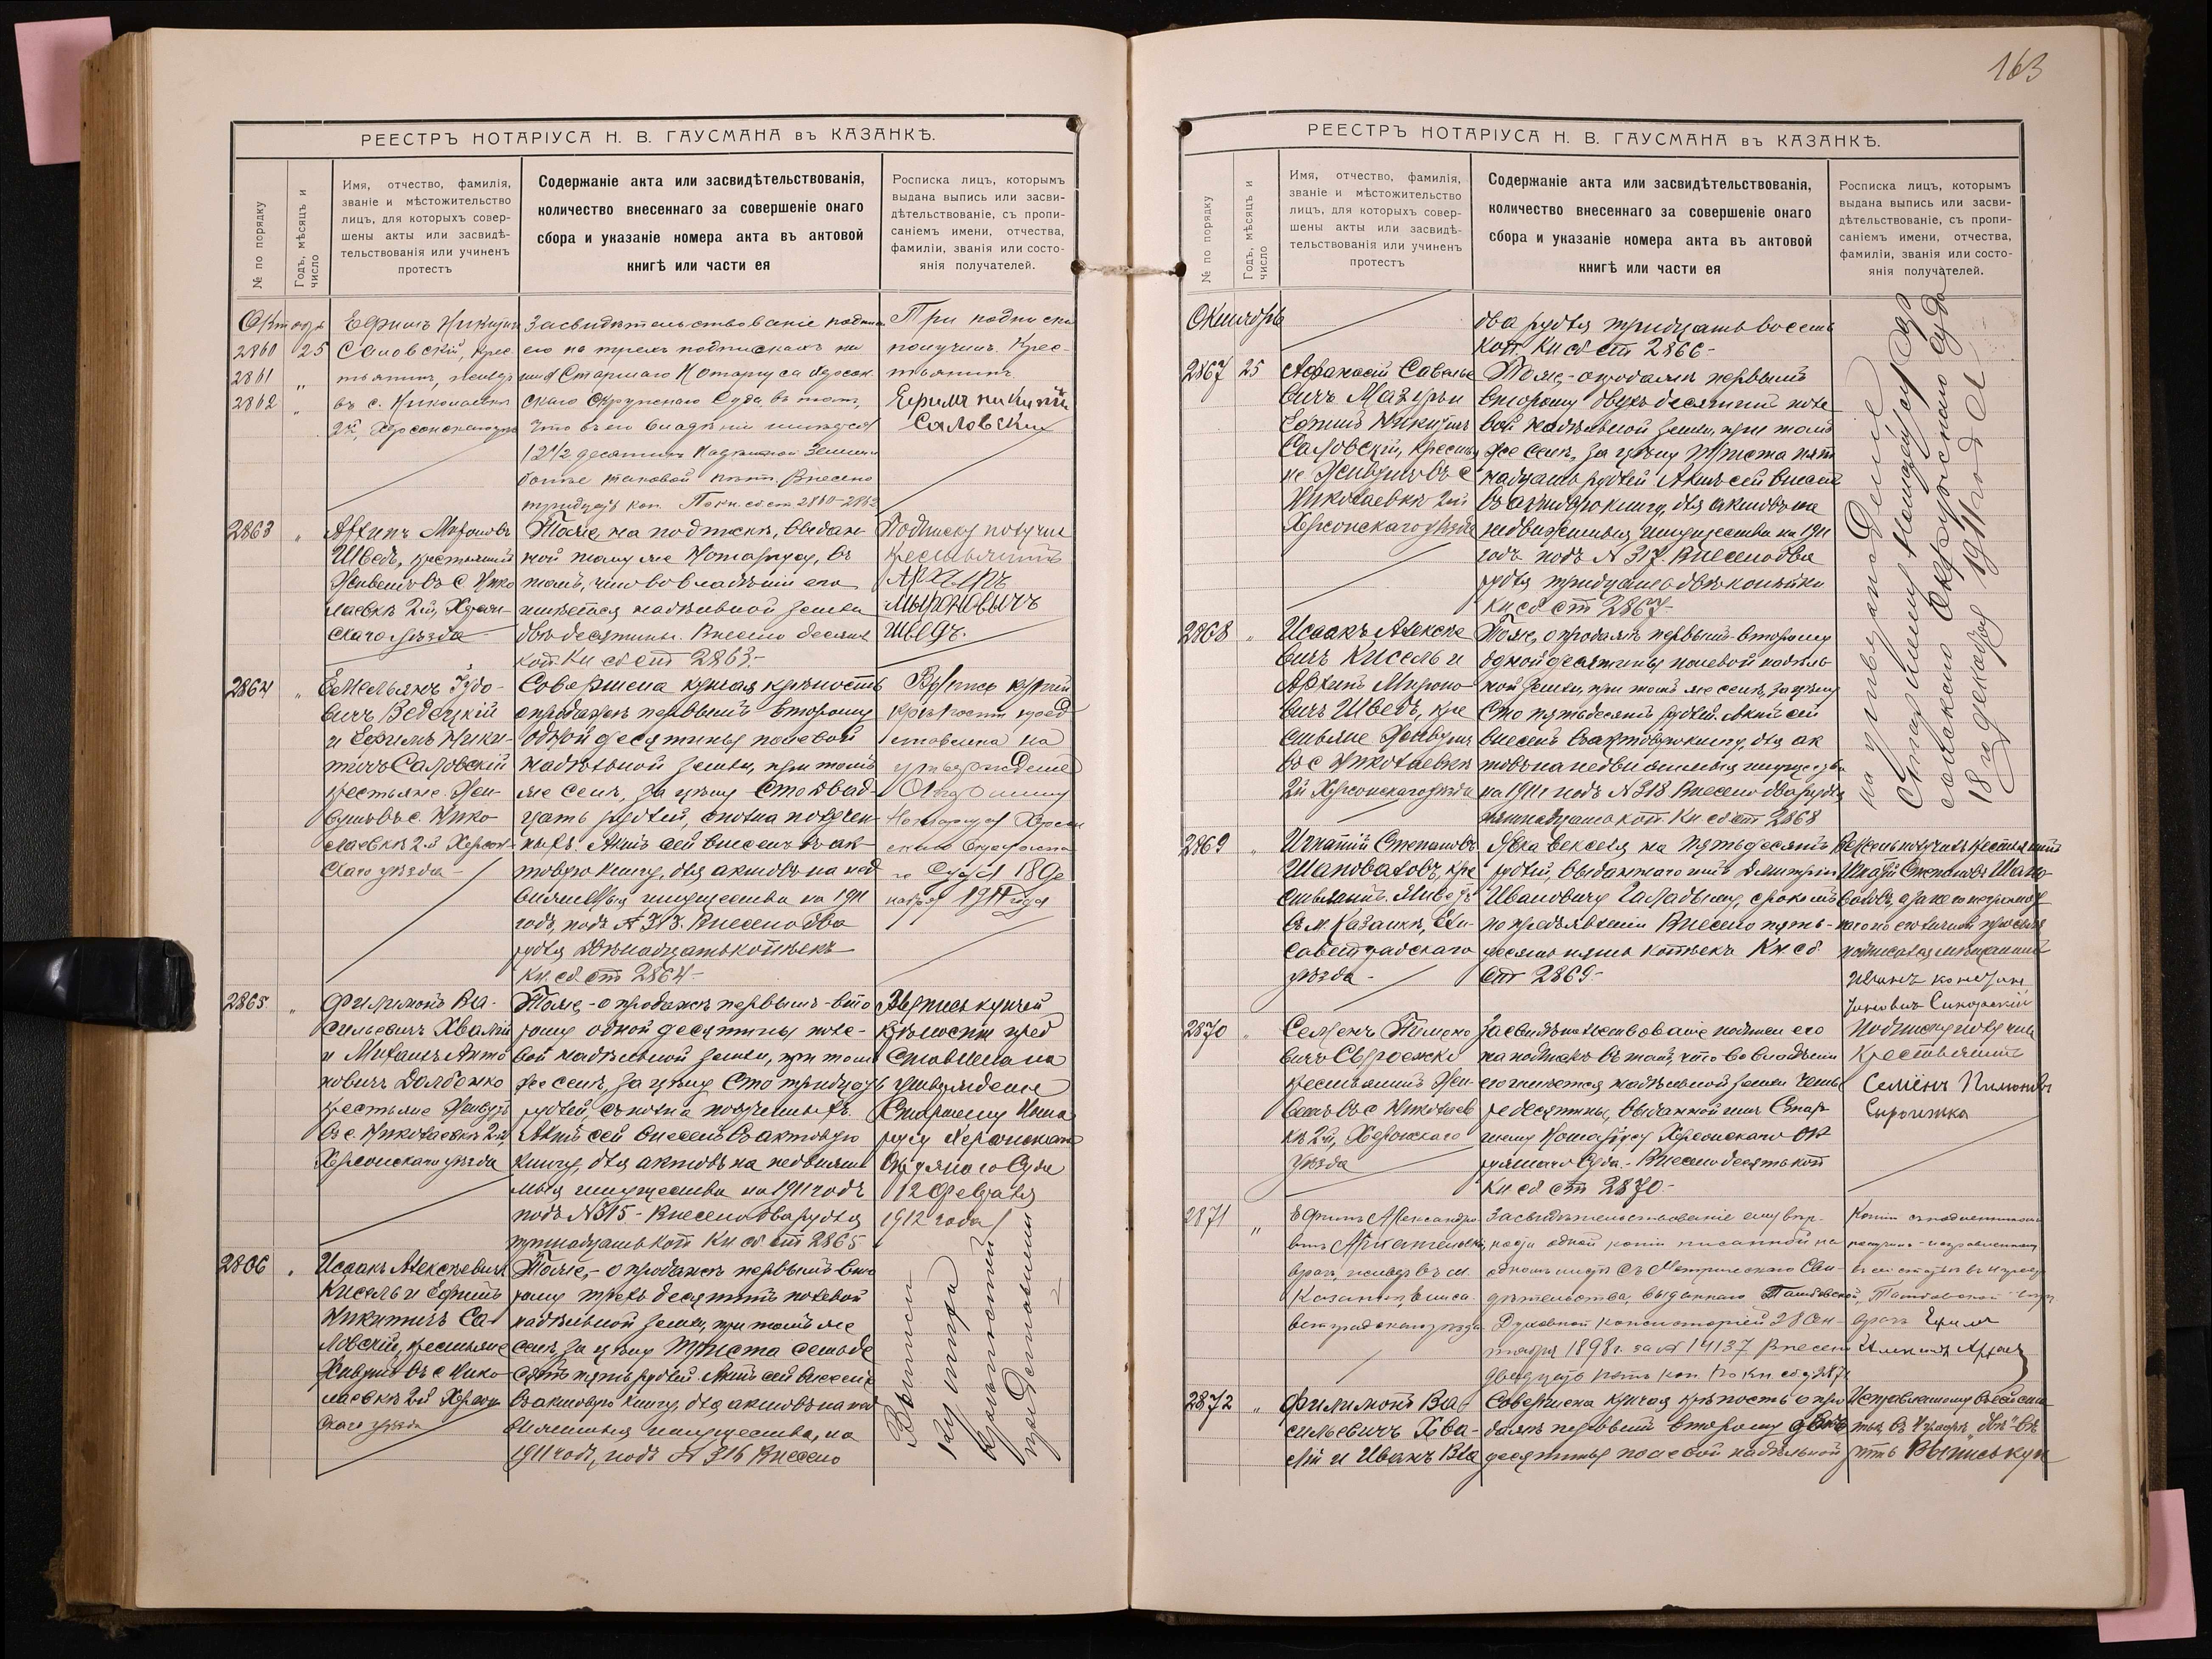 163
РЕЕСТРЪ НОТАРІУСА Н. В. ГАУСМАНА въ КАЗАНКѢ.
№ по порядку
Годъ, мѣсяцъ и
число
Имя, отчество, фамилія,
званіе и мѣстожительство
лицъ, для которыхъ совер-
шены акты или засвидѣ-
тельствованія или учиненъ
протестъ
Содержаніе акта или засвидѣтельствованія,
количество внесеннаго за совершеніе онаго
сбора и указаніе номера акта въ актовой
книгѣ или части ея
Росписка лицъ, которымъ
выдана выпись или засви-
дѣтельствованіе, съ пропи-
саніемъ имени, отчества,
фамиліи, званія или состо-
янія получателей.
Октября
2860 25
2861 „
2862 „
Ефимъ Никитич
Саловскій, крес-
тьянинъ, живущ
въ с. Николаевкѣ
2й, Херсонскаго
Засвидѣтельствованіе подписи
его на трехъ подпискахъ на
имя Старшаго Нотаріуса Херсон-
скаго Окружнаго Суда въ томъ,
что въ его владѣніи имѣется
12 1/2 десятинъ надѣльной земли и
болѣе таковой нѣтъ. Внесено
тридцать коп. По кн. сб. ст 2860-2862
При подписки
получилъ. Крес-
тьянинъ
Ефимъ Никитін
Саловскій
2863 „
Архипъ Мироновъ
Шведъ, крестьянинъ
Живетъ въ с. Нико
лаевкѣ 2й, Херсон-
скаго уѣзда
Тоже, на подпискѣ, выдан-
ной тому же Нотаріусу, въ
томъ, что во владѣніи его
имѣется надѣльной земли
двѣ десятины. Внесено десять
коп. Кн сб ст 2863-
Подписку получил
Крестьянинъ
Архыпъ
Мыроновычъ
Шведъ.
2864 „
Емельянъ
вичъ
и Ефимъ Ники-
тичъ Саловскій
крестьяне. Жи-
вущіе въ с. Нико-
лаевкѣ 2й Херсон-
скаго уѣзда -
Совершена купчая крѣпость
о продажѣ первымъ второму
одной десятины полевой
надѣльной земли, при томъ
же селѣ, за цѣну Сто двад-
цать рублей, сполна получен-
ныхъ. Актъ сей внесенъ въ ак-
товую книгу, для актовъ на нед
вижимыя имущества на 1911
годъ, подъ № 313. Внесено два
рубля двѣнадцать копѣекъ
Кн. сб. ст 2864-
Выпись купчей
крѣпости пред
ставлена на
утвержденіе
Старшему
Нотаріусу Херсон
скаго Окружна
го Суда 18 де
кабря 1911 года
2865 „
Филимонъ Ва-
сильевичъ Хвалій
и Михаилъ Анто
новичъ Долбежко
крестьяне Живущ
въ с. Николаевкѣ 2й,
Херсонскаго уѣзда
Тоже,- о продажѣ первымъ - вто
рому одной десятины поле-
вой надѣльной земли, при томъ
же селѣ, за цѣну Сто тридцать
рублей, сполна полученныхъ.
Актъ сей внесенъ въ актовую
книгу, для актовъ на недвижи
мыя имущества на 1911 годъ
подъ № 315 - Внесено два рубля
тринадцать коп Кн сб ст 2865
Выпись купчей
крѣпости пред
ставлена на
утвержденіе
Старшему Нота
ріусу Херсонскаго
Окружнаго Суда
12 февраля
1912 года
2866 „
Исаакъ Алексѣевичъ
Кисель и Ефимъ
Никитичъ Са-
ловскій, крестьяне
Живущіе въ с Нико-
лаевкѣ 2й Херсон-
скаго уѣзда
Тоже,- о продажѣ первымъ вто
рому трехъ десятинъ полевой
надѣльной земли, при томъ же
селѣ, за цѣну Триста семьде
сятъ пять рублей. Актъ сей внесенъ
въ актовую книгу, для актовъ на нед
вижимыя имущества, на
1911 годъ, подъ № 316 Внесено
Выписи
купчихъ
крѣпостей
представлены
РЕЕСТРЪ НОТАРІУСА Н. В. ГАУСМАНА въ КАЗАНКѢ.
№ по порядку
Годъ, мѣсяцъ и
число
Имя, отчество, фамилія,
званіе и мѣстожительство
лицъ, для которыхъ совер-
шены акты или засвидѣ-
тельствованія или учиненъ
протестъ
Содержаніе акта или засвидѣтельствованія,
количество внесеннаго за совершеніе онаго
сбора и указаніе номера акта въ актовой
книгѣ или части ея
Росписка лицъ, которымъ
выдана выпись или засви-
дѣтельствованіе, съ пропи-
саніемъ имени, отчества,
фамиліи, званія или состо-
янія получателей.
Октября
два рубля тридцать восемь
коп. Кн сб ст 2866-
2867 25
Афанасій Савелье
вичъ Мазуръ и
Ефимъ Никитичъ
Саловскій, крестья
не Живущіе въ с
Николаевкѣ 2й
Херсонскаго уѣзда
Тоже,- о продажѣ первымъ
второму двухъ десятинъ поле
вой надѣльной земли, при томъ
же селѣ, за цѣну Триста пят
надцать рублей Актъ сей внесенъ
въ актовую книгу, для актовъ на
недвижимыя имущества на 1911
годъ подъ № 317. Внесено два
рубля тридцать двѣ копѣйки
Кн. сб ст 2867-
на утвержденіе
Старшему Нотаріусу Хер
сонскаго Окружнаго Суда
18 декабря 1911 года
2868 „
Исаакъ Алексѣе
вичъ Кисель и
Архипъ Мироно-
вичъ Шведъ, кре
стьяне Живущіе
въ с Николаевкѣ
2й Херсонскаго уѣзда
Тоже, о продажѣ первымъ - второму
одной десятины полевой надѣль-
ной земли, при томъ же селѣ, за цѣну
Сто пятьдесятъ рублей. Актъ сей
внесенъ въ актовую книгу, для ак
товъ на недвижимыя имущества
на 1911 годъ № 318 Внесено два рубля
пятнадцать коп. Кн сб ст 2868
2869 „
Игнатій Степановъ
Шаповаловъ, кре
стьянинъ. Живетъ
въ м. Казанкѣ, Ели-
саветградскаго
уѣзда -
Явка векселя на пятьдесятъ
рублей, выданнаго имъ Дмитрію
Ивановичу, срокомъ
по предъявленіи Внесено пять-
десятъ пять копѣекъ Кн. сб.
ст 2869-
Вексель получилъ крестьянинъ
Игнатій Степановъ Шапо-
валовъ, а за него неграмот
наго по его личной просьбѣ
подписался мѣщанинъ
Иванъ
Сикорскій
2870 „
Семенъ Пимено
вичъ Сыроежко
крестьянинъ Жи-
ветъ въ с Николаев
кѣ 2й, Херсонскаго
уѣзда
Засвидѣтельствованіе подписи его
на подпискѣ въ томъ, что во владѣніи
его имѣется надѣльной земли четы
ре десятины, выданной имъ Стар-
шему Нотаріусу Херсонскаго Ок
ружнаго Суда. - Внесено десять коп
Кн сб ст 2870-
Подписку получилъ
Крестьянинъ
Семёнъ Пимоновъ
Сыроижка
2871 „
Ефимъ Александро-
вичъ Архангельскі
врачъ, живущ въ м.
Казанкѣ, Елиса-
ветградскаго уѣзда
Засвидѣтельствованіе ему вѣр-
ности одной копіи писанной на
одномъ листѣ съ Метрическаго Сви-
дѣтельства, выданнаго Тамбовской
Духовной Консисторіей 28 Сен-
тября 1898 г. за № 14137 Внесено
двадцать пять коп. По кн. сб. 2871
Копію съ подлинникомъ
получилъ - исправленному
въ сей статьѣ вѣрить
2872 „
Филимонъ Ва-
сильевичъ Хва-
лій и Иванъ Ва
Совершена купчая крѣпость о про
дажѣ первымъ второму двѣ
десятины полевой надѣльной
Исправленному въ сей ста
тьѣ въ 4 графѣ „двѣ" вѣ
рить Выпись куп